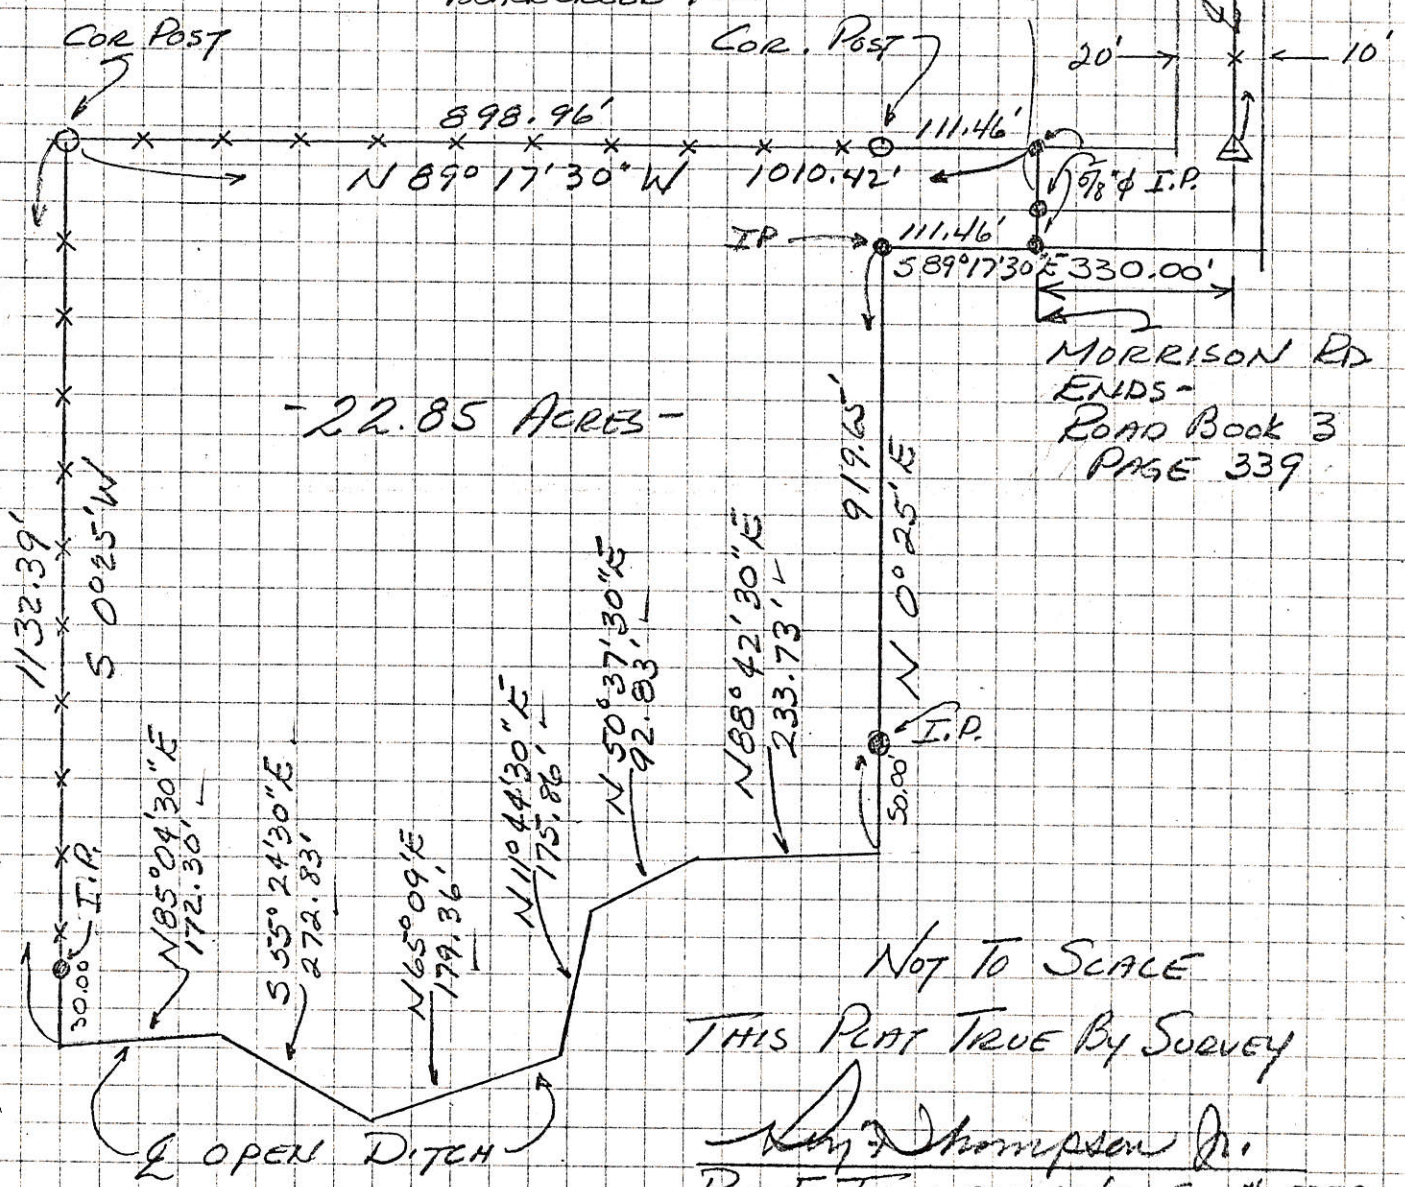 COR POST
COR. POST
20'
10'
898.96'
111.46'
N 89° 17' 30" W 1010.42'
5/8" ϕ I.P.
IP
111.46'
S 89° 17' 30" E 330.00'
MORRISON RD
ENDS-
ROAD BOOK 3
PAGE 339
-22.85 ACRES-
1132.39'
S 0° 25' W
919.65'
N 0° 25' E
I.P.
50.00'
I.P.
30.00'
N 85° 04' 30" E
172.30'
S 55° 24' 30" E
272.83'
N 65° 09' E
179.36'
N 11° 44' 30" E
175.86'
N 50° 37' 30" E
92.83'
N 88° 42' 30" E
233.73'
NOT TO SCALE
THIS PLAT TRUE BY SURVEY
℄ OPEN DITCH
Thompson Jr.